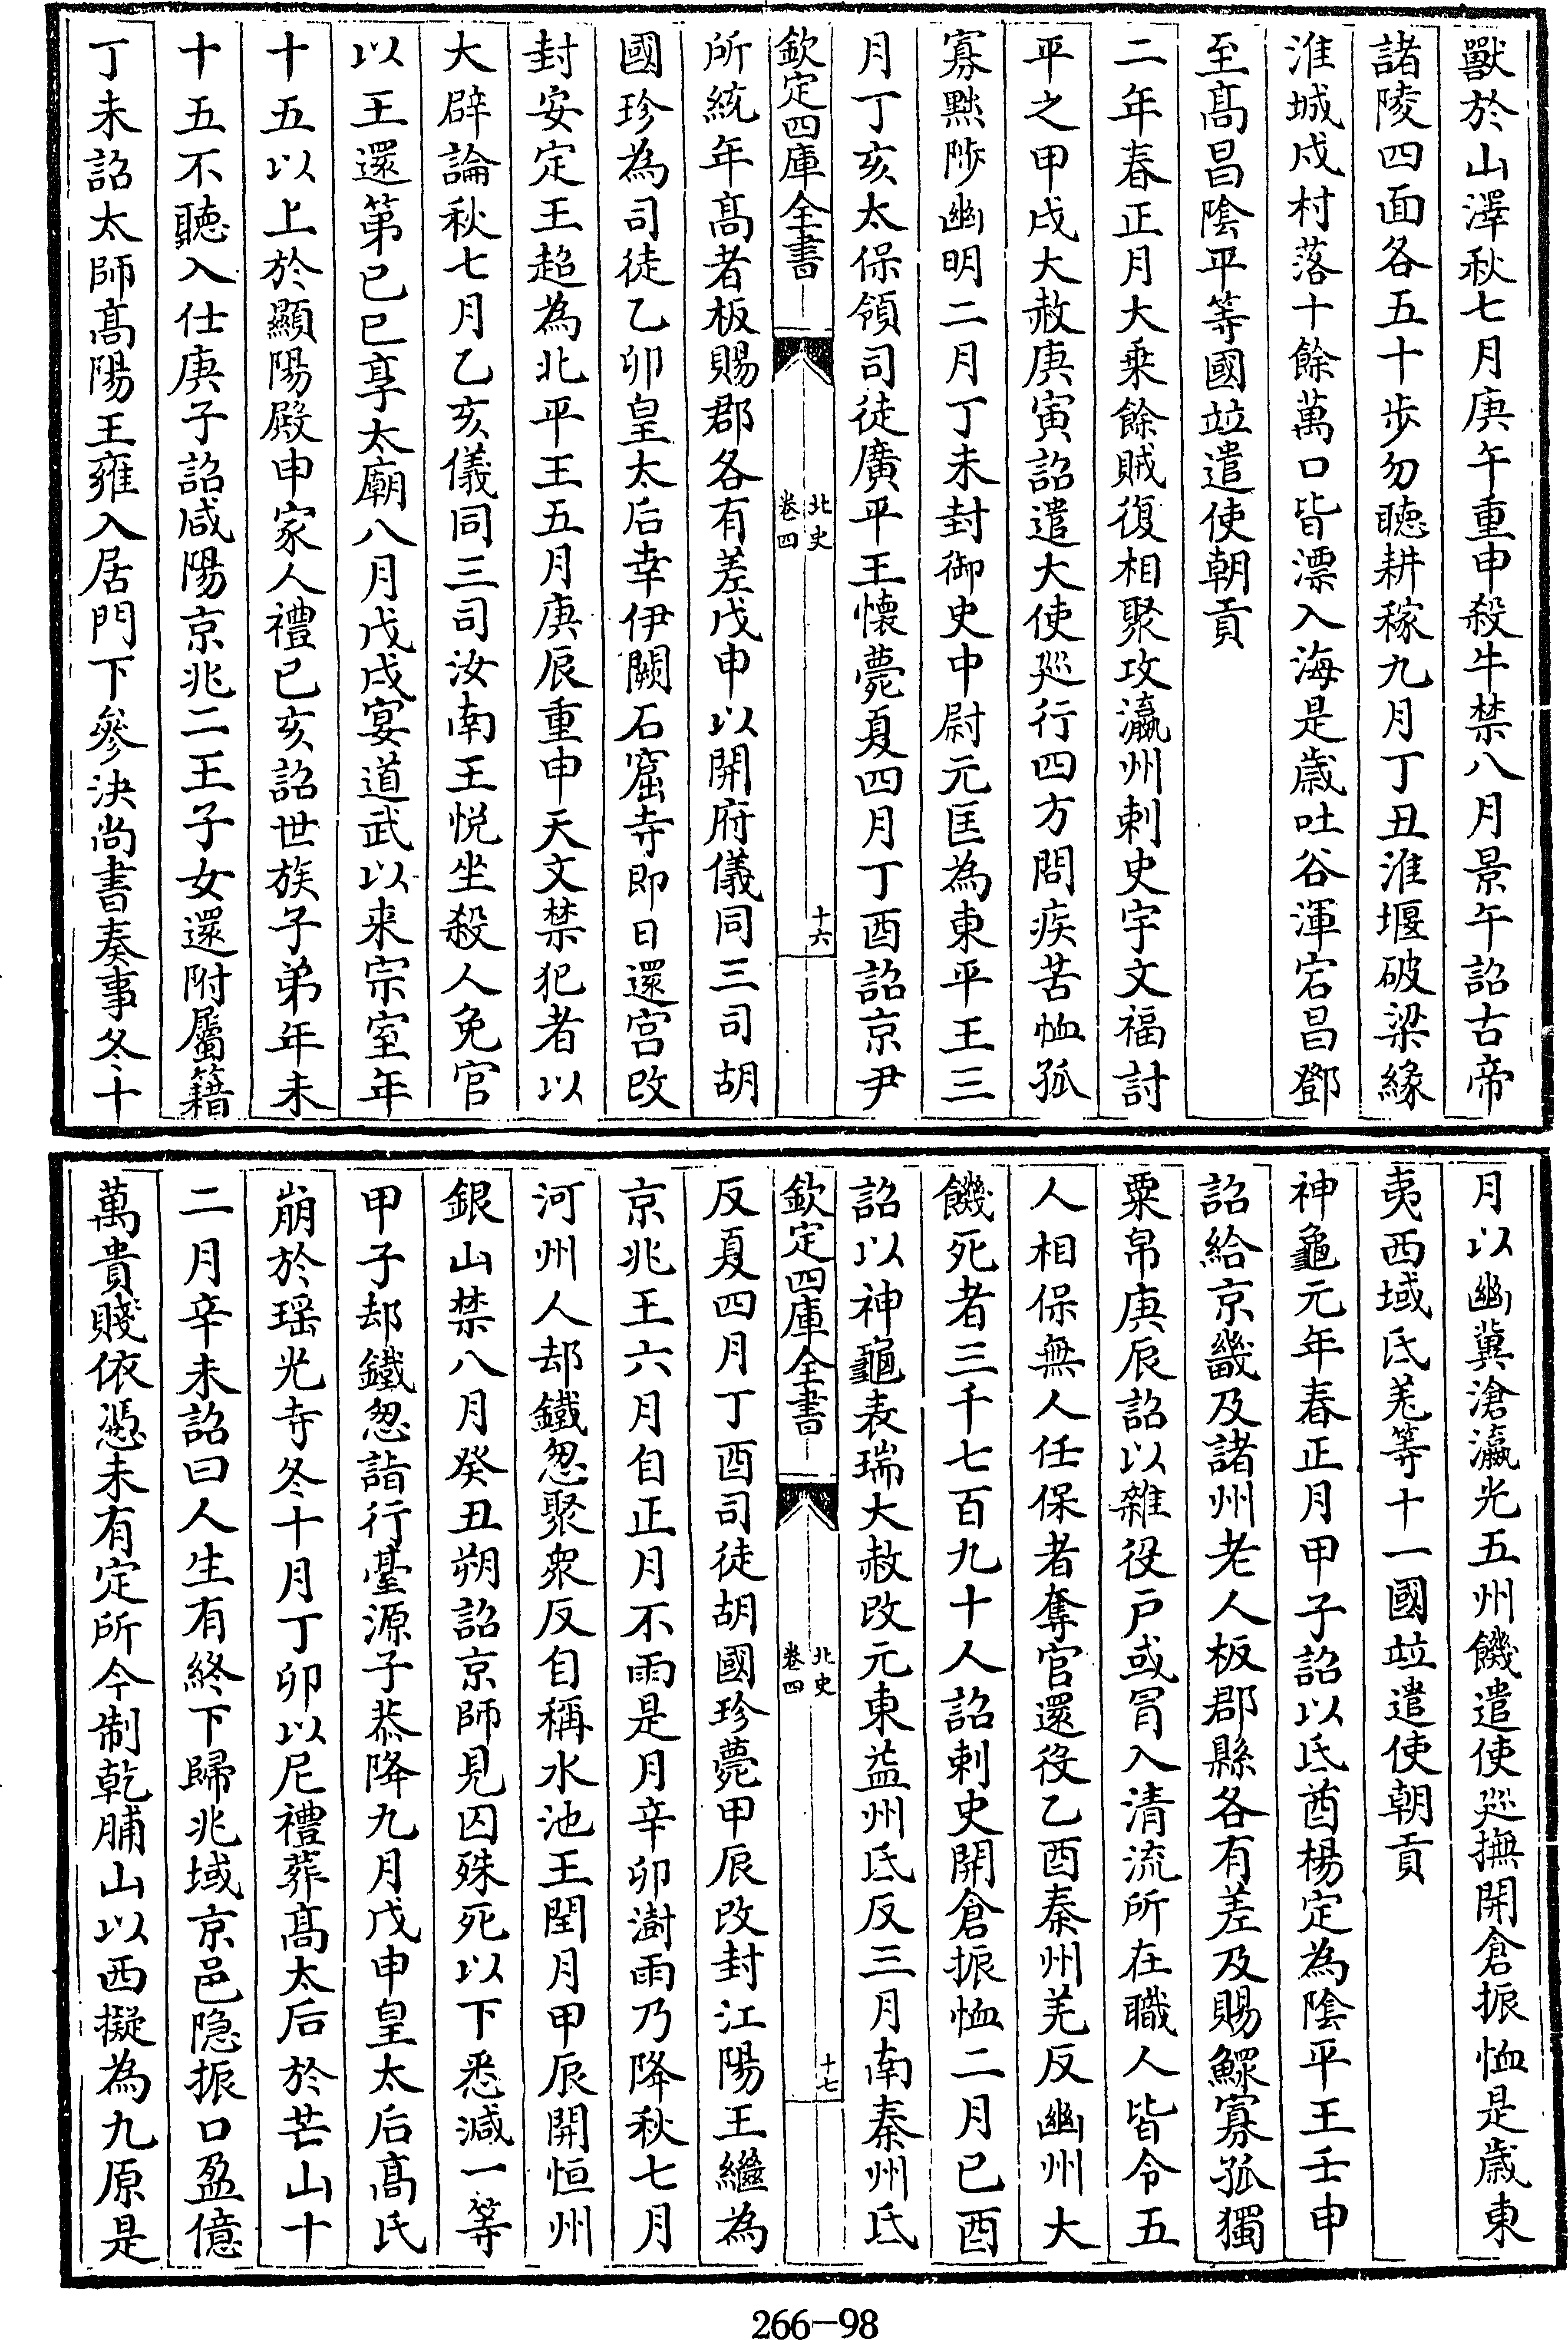 獸於山澤秋七月庚午重申殺牛禁八月景午詔古帝
諸陵四面各五十歩勿聽耕稼九月丁丑淮堰破梁緣
淮城戍村落十餘萬口皆漂入海是歲吐谷渾宕昌鄧
至髙昌隂平等國竝遣使朝貢
二年春正月大乗餘賊復相聚攻瀛州刺史宇文福討
平之甲戌大赦庚寅詔遣大使廵行四方問疾苦恤孤
寡黜陟幽明二月丁未封御史中尉元匡為東平王三
月丁亥太保領司徒廣平王懐薨夏四月丁酉詔京尹
欽定四庫全書
北史
卷四
十六
所統年髙者板賜郡各有差戊申以開府儀同三司胡
國珍為司徒乙卯皇太后幸伊闕石窟寺即日還宮改
封安定王超為北平王五月庚辰重申天文禁犯者以
大辟論秋七月乙亥儀同三司汝南王悦坐殺人免官
以王還第已巳享太廟八月戊戌宴道武以来宗室年
十五以上於顯陽殿申家人禮已亥詔世族子弟年未
十五不聽入仕庚子詔咸陽京兆二王子女還附屬籍
丁未詔太師髙陽王雍入居門下參決尚書奏事冬十
月以幽冀滄瀛光五州饑遣使廵撫開倉振恤是歲東
夷西域氐羌等十一國竝遣使朝貢
神龜元年春正月甲子詔以氐酋楊定為隂平王壬申
詔給京畿及諸州老人板郡縣各有差及賜鰥寡孤獨
粟帛庚辰詔以雜役戸或冐入清流所在職人皆令五
人相保無人任保者奪官還役乙酉秦州羌反幽州大
饑死者三千七百九十人詔刺史開倉振恤二月已酉
詔以神龜表瑞大赦改元東益州氐反三月南秦州氐
欽定四庫全書
北史
卷四
十七
反夏四月丁酉司徒胡國珍薨甲辰改封江陽王繼為
京兆王六月自正月不雨是月辛卯澍雨乃降秋七月
河州人却鐵怱聚衆反自稱水池王閏月甲辰開恒州
銀山禁八月癸丑朔詔京師見囚殊死以下悉減一等
甲子却鐵怱詣行臺源子恭降九月戊申皇太后髙氏
崩於瑶光寺冬十月丁卯以尼禮葬髙太后於芒山十
二月辛未詔曰人生有終下歸兆域京邑隐振口盈億
萬貴賤依憑未有定所今制乾脯山以西擬為九原是
266-98